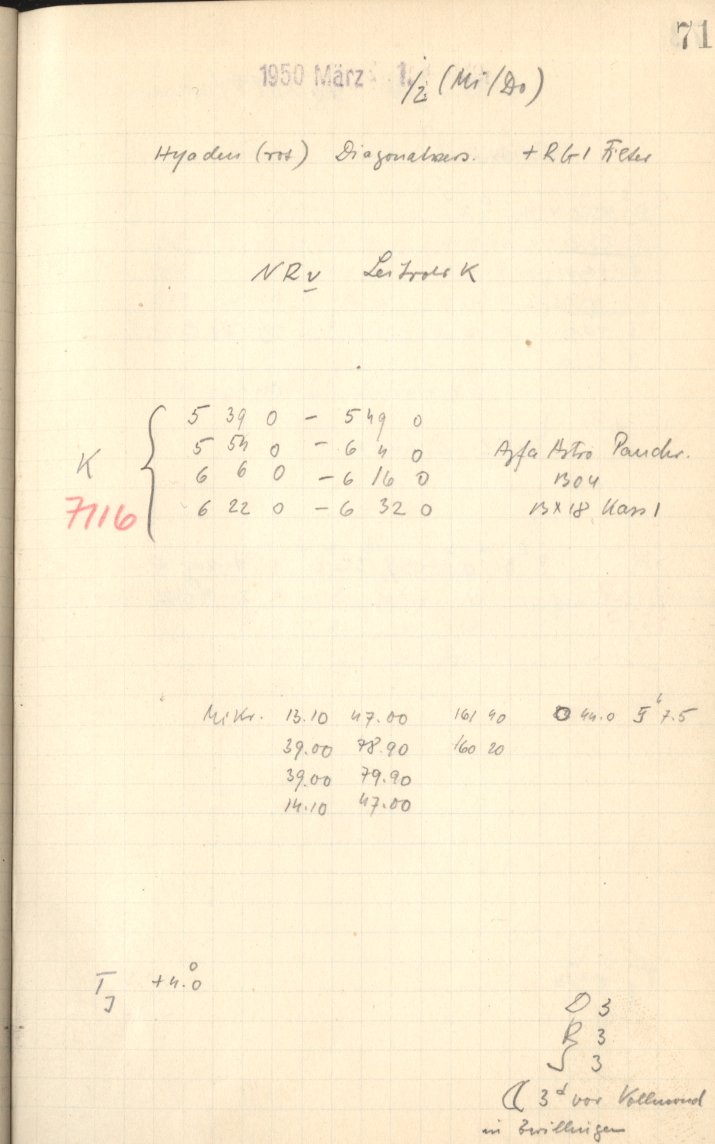 71
1950 März 1. 1/2 (Mi/Do)
Hyaden (rot) Diagonalvers. + RG1 Filter
NRv Leitrohr K
5 39 0 - 5 49 0
5 54 0 - 6 4 0 Agfa Astro Panchr.
K 6 6 0 - 6 16 0 1304
7116 6 22 0 - 6 32 0 13x18 Kass 1
Mikr. 13.10 47.00 161 40 O 44.0 7.5
39.00 78.90 160 20
39.00 79.90
14.10 47.00
TJ +4.°0
D 3
R 3
S 3
☾ 3d vor Vollmond
in Zwillingen